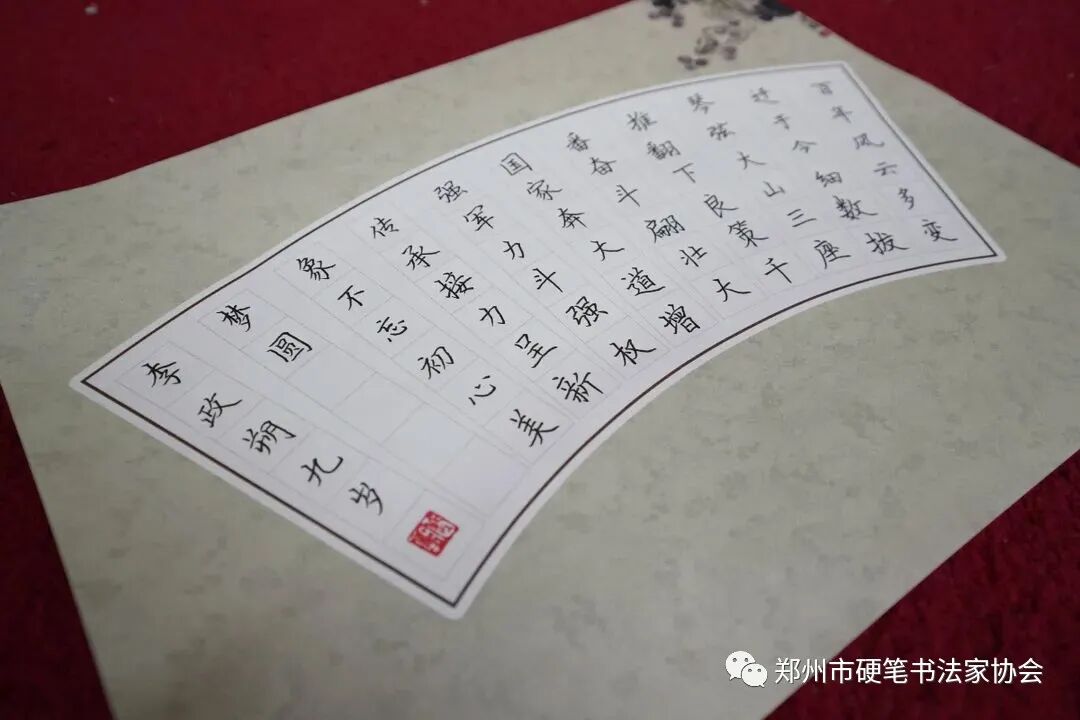 百年风云多变
迁于今细数拨
琴弦大山三座
推翻下良策千
番奋斗翩壮大
国家奔大道增
强军力斗强权
传承接力呈新
象不忘初心美
梦圆
李政朔九岁
郑州市硬笔书法家协会